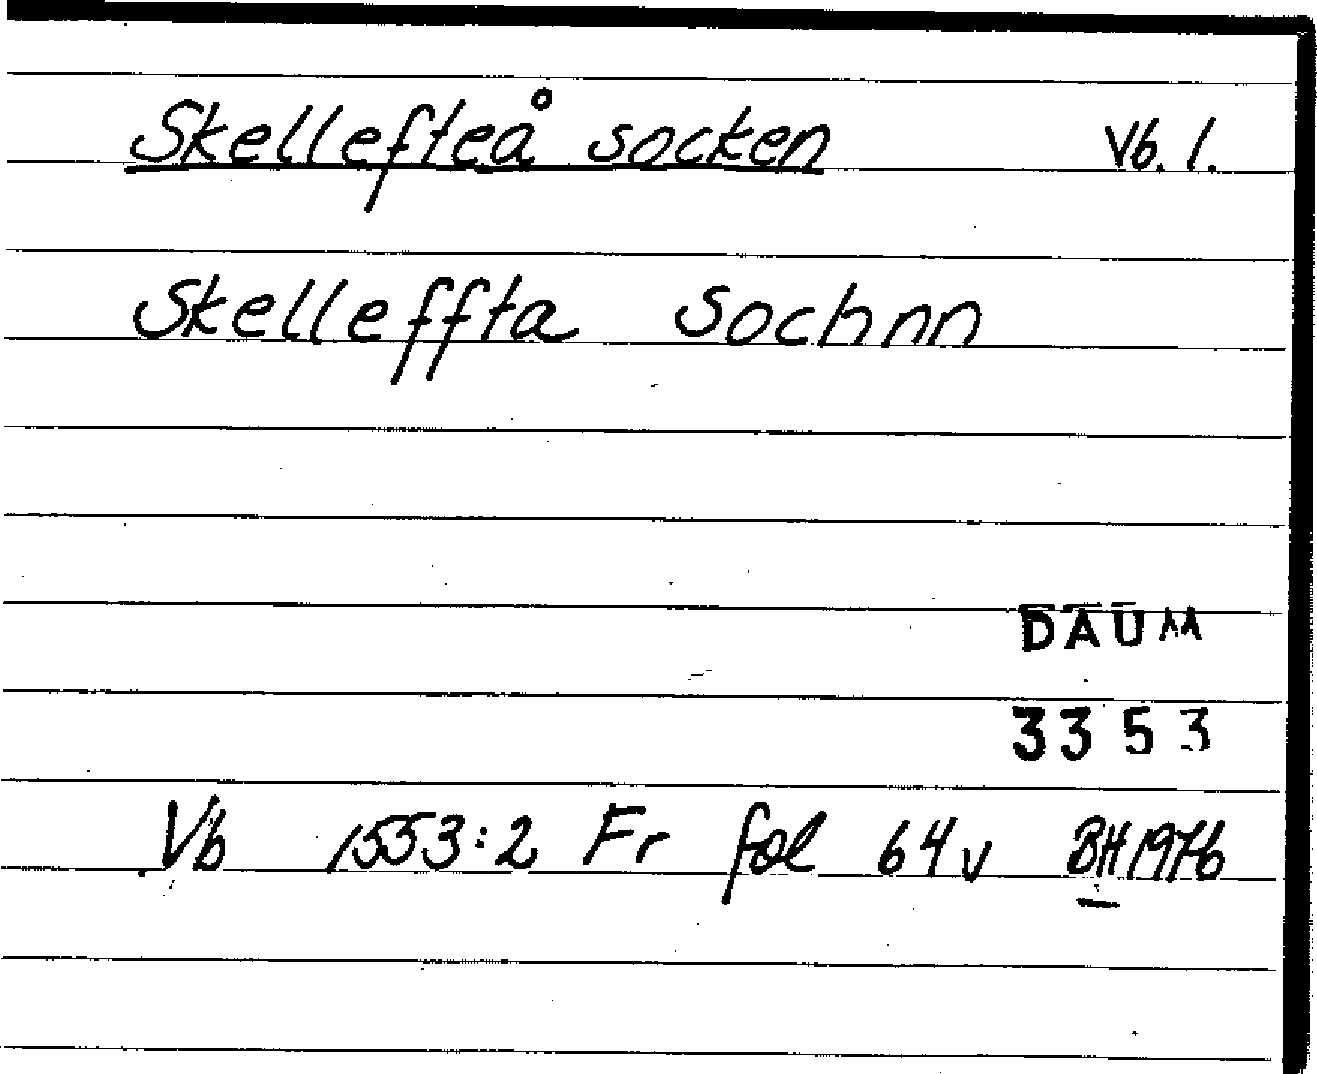 Skellefteå socken Vb. 1.
Skelleffta Sochnn
DAUM
3353
Vb 1553:2 Fr fol 64v BH 1976